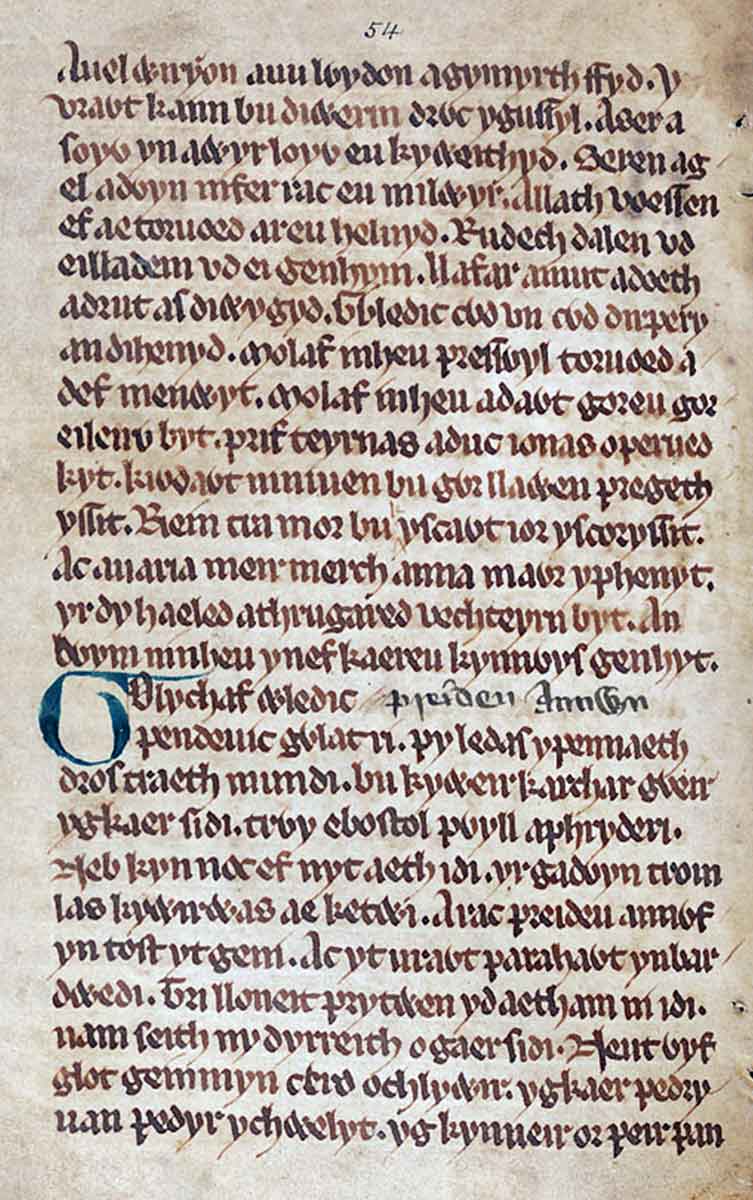 54
Auel wiryon auu lỽydon agymyrth ffyd. y
vraỽt kann bu diwerin drỽc yguſſyl. Aỽer a
ſoyỽ yn awyr loyỽ eu kyweithyd. Seren ag
el adoyn inſer rac eu milwyr. Allath voeſſen
ef ae toruoed areu heluyd. Rudech dalen vd
eilladem vd ei genhym. llafar amut adoeth
adrut aſ diwygyd. Gỽledic cỽd vn cỽd dirpery
an dihenyd. molaf inheu preſſỽyl toruoed a
def menwyt. molaf inheu adaỽt goreu gor
eilenỽ byt. prif teyrnas aduc ionas operued
kyt. kiỽdaỽt niniuen bu gỽr llawen pregeth
yſſit. Riein tra mor bu yſcaỽt ior yſcoryſſit.
Ac auaria meir merch anna maỽr yphenyt.
yr dy haeled athrugared vechteyrn byt. An
bỽym ninheu ynef kaereu kynnỽys genhyt.
Golychaf wledic preideu Annỽn
pendeuic gỽlat ri. py ledaſ ypennaeth
dros traeth mundi. bu kyweir karchar gỽeir
ygkaer ſidi. trỽy eboſtol pỽyll aphryderi.
Neb kyn noc ef nyt aeth idi. yr gadỽyn trom
las kywirwas ae ketwi. A rac preideu annỽf
yn toſt yt geni. Ac yt uraỽt parahaỽt ynbar
dwedi. Tri lloneit prytwen yd aetham ni idi.
nam ſeith ny dyrreith o gaer ſidi. Neut ỽyf
glot geinmyn cerd ochlywir. ygkaer pedry
uan pedyr ychwelyt. yg kynneir or peir pan